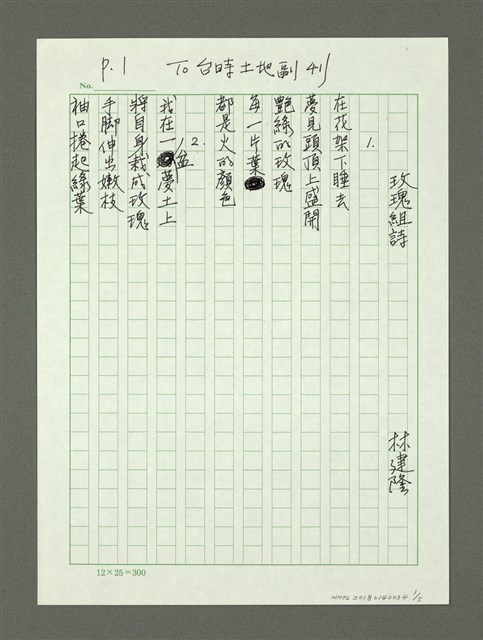 P.1 To 台時土地副刊
No.
玫瑰組詩
林建隆
1.
在花架下睡去
夢見頭頂上盛開
艷綠的玫瑰
每一片葉
都是火的顏色
2.
我在一盆夢土上
將自身栽成玫瑰
手腳伸出嫩枝
袖口捲起綠葉
12×25=300
NMTL20180140034 1/2